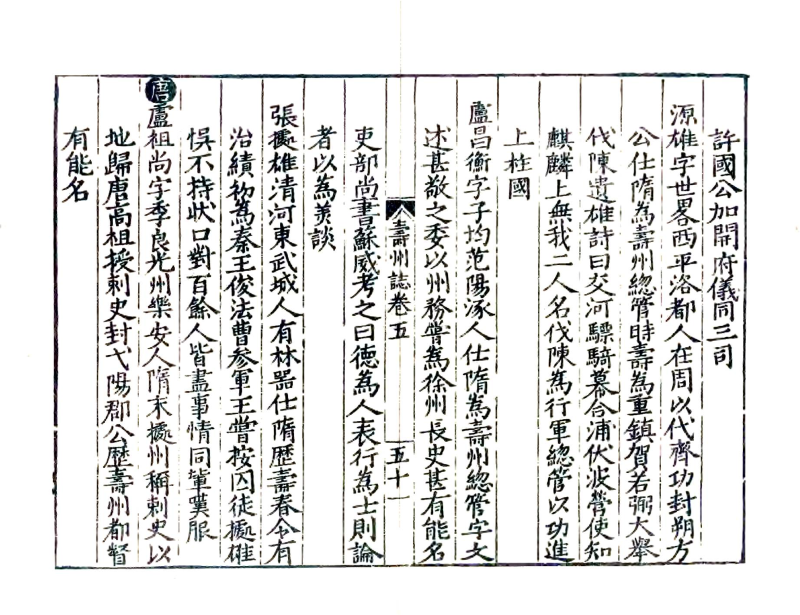 許國公加開府儀同三司
源雄字世畧西平洛都人在周以代齊功封朔方
公仕隋為壽州緫管時壽為重鎮賀若弼大舉
伐陳遺雄詩曰交河驃騎幕合浦伏波營使知
麒麟上無我二人名伐陳為行軍緫管以功進
上柱國
盧昌衡字子均范陽涿人仕隋為壽州緫管宇文
述甚敬之委以州務嘗為徐州長史甚有能名
壽州誌卷五
五十一
吏部尚書蘇威考之曰德為人表行為士則論
者以為美談
張處雄清河東武城人有林器仕隋歷壽春令有
治績初為秦王俊法曹參軍王嘗按囚徒處雄
悞不持狀口對百餘人皆盡事情同輩嘆服
唐
盧祖尚字季良光州樂安人隋末據州稱刺史以
地歸唐高祖授刺史封弋陽郡公歷壽州都督
有能名